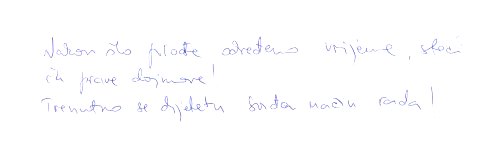 Nakon što prođe određeno vrijeme, steći
ih prave dojmove!
Trenutno se djetetu sviđa način rada!